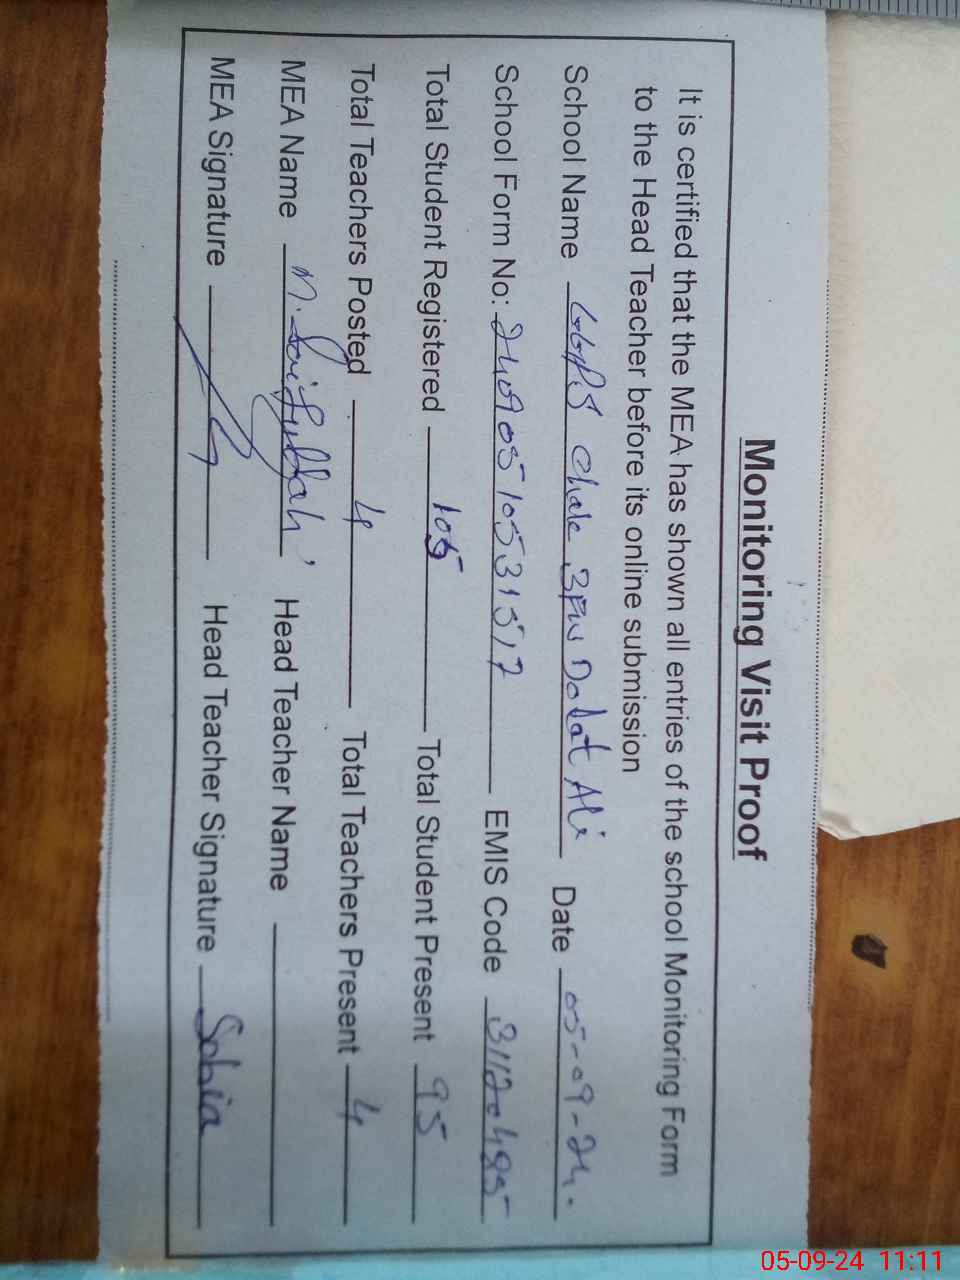 Monitoring Visit Proof
It is certified that the MEA has shown all entries of the school Monitoring Form
to the Head Teacher before its online submission
School Name GGPS Chak 3FW Dolat Ali Date 05-09-24.
School Form No: 24090510531517 EMIS Code 31120485
Total Student Registered 105 Total Student Present 95
Total Teachers Posted 4 Total Teachers Present 4
MEA Name M. Saifullah Head Teacher Name
MEA Signature Head Teacher Signature Sobia
05-09-24 11:11